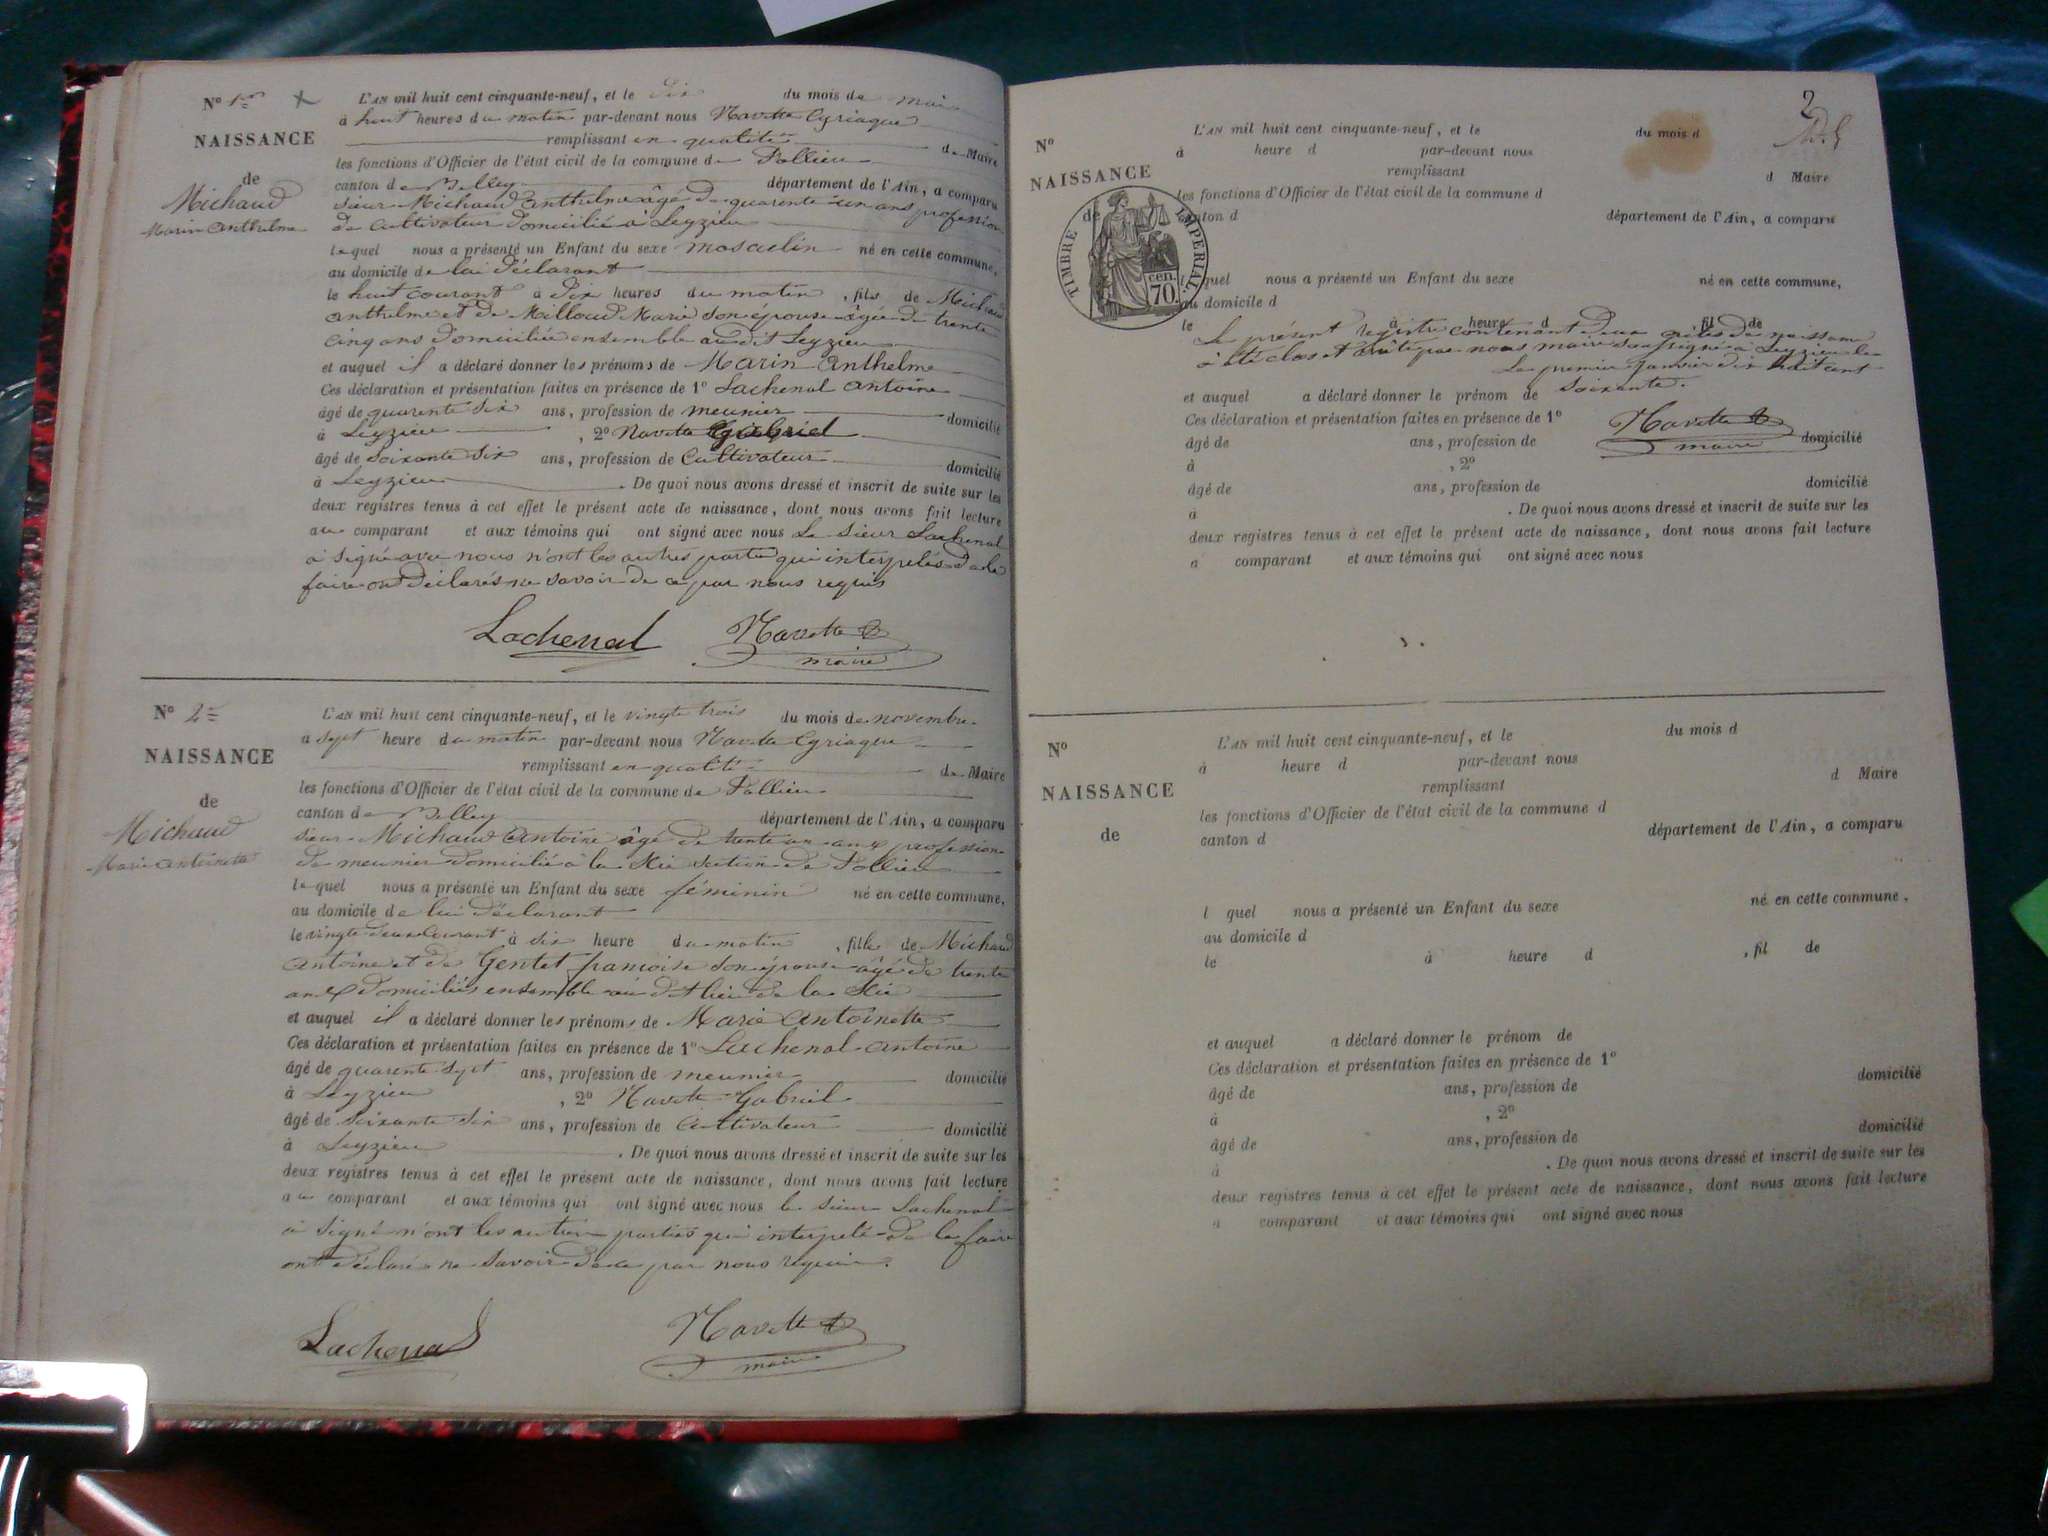 N° 1er
NAISSANCE
de
Michaud
Marin Anthelme
L'AN mil huit cent cinquante-neuf, et le dix du mois de mai
à huit heures du matin par-devant nous Navette Cyriaque
remplissant en qualité de Maire
les fonctions d'Officier de l'état civil de la commune de Pollieu
canton de Belley département de l'Ain, a comparu
sieur Michaud Anthelme âgé de quarente un ans profession
de cultivateur domicilié à Leyzieu
lequel nous a présenté un Enfant du sexe masculin né en cette commune,
au domicile de lui déclarant
le huit courant à dix heures du matin, fils de Michaud
anthelme et de Milloud Marie son épouse âgée de trente
cinq ans domiciliée ensemble au dit Leyzieu
et auquel il a déclaré donner les prénoms de Marin Anthelme
Ces déclaration et présentation faites en présence de 1° Lachenal antoine
âgé de quarente six ans, profession de meunier domicilié
à Leyzieu, 2° Navette Gabriel
âgé de soixante six ans, profession de Cultivateur domicilié
à Leyzieu. De quoi nous avons dressé et inscrit de suite sur les
deux registres tenus à cet effet le présent acte de naissance, dont nous avons fait lecture
au comparant et aux témoins qui ont signé avec nous Le sieur Lachenal
à signé avec nous n'ont les autres partie qui interpelés de le
faire ont déclarés ne savoir de ce par nous requis
Lachenal Navette C
maire
N° 2
NAISSANCE
de
Michaud
Marie Antoinette
L'AN mil huit cent cinquante-neuf, et le vingte trois du mois de novembre
à sept heure du matin par-devant nous Navette Cyriaque
remplissant en qualité de Maire
les fonctions d'Officier de l'état civil de la commune de Pollieu
canton de Belley département de l'Ain, a comparu
sieur Michaud Antoine âgé de trente un ans profession
de meunier domicilié à la section de Pollieu
lequel nous a présenté un Enfant du sexe féminin né en cette commune,
au domicile de lui déclarant
le vingte deux courant à six heure du matin, fille de Michaud
Antoine et de Gentet francoise son épouse âgée de trente
ans domiciliés ensemble au dit lieu de la
et auquel il a déclaré donner les prénoms de Marie Antoinette
Ces déclaration et présentation faites en présence de 1° Lachenal Antoine
âgé de quarente sept ans, profession de meunier domicilié
à Leyzieu, 2° Navette Gabriel
âgé de soixante six ans, profession de Cultivateur domicilié
à Leyzieu. De quoi nous avons dressé et inscrit de suite sur les
deux registres tenus à cet effet le présent acte de naissance, dont nous avons fait lecture
au comparant et aux témoins qui ont signé avec nous le sieur Lachenal
à signé n'ont les autres parties qui interpelé de le faire
ont déclaré ne savoir de ce par nous requis.
Lachenal Navette C
maire
2
N°
NAISSANCE
de
TIMBRE IMPERIAL
70 cen.
L'AN mil huit cent cinquante-neuf, et le du mois d
à heure d par-devant nous
remplissant d Maire
les fonctions d'Officier de l'état civil de la commune d
canton d département de l'Ain, a comparu
l quel nous a présenté un Enfant du sexe né en cette commune,
au domicile d
le à heure d, fil de
Le présent registre contenant deux actes de naissance
à été clos et arrêté par nous maire soussigné à Leyzieu le
Le premier janvier dix huit cent
soixante.
et auquel a déclaré donner le prénom de
Ces déclaration et présentation faites en présence de 1°
Navette C
maire
âgé de ans, profession de domicilié
à, 2°
âgé de ans, profession de domicilié
à. De quoi nous avons dressé et inscrit de suite sur les
deux registres tenus à cet effet le présent acte de naissance, dont nous avons fait lecture
a comparant et aux témoins qui ont signé avec nous
N°
NAISSANCE
de
L'AN mil huit cent cinquante-neuf, et le du mois d
à heure d par-devant nous
remplissant d Maire
les fonctions d'Officier de l'état civil de la commune d
canton d département de l'Ain, a comparu
l quel nous a présenté un Enfant du sexe né en cette commune,
au domicile d
le à heure d, fil de
et auquel a déclaré donner le prénom de
Ces déclaration et présentation faites en présence de 1°
âgé de ans, profession de domicilié
à, 2°
âgé de ans, profession de domicilié
à. De quoi nous avons dressé et inscrit de suite sur les
deux registres tenus à cet effet le présent acte de naissance, dont nous avons fait lecture
a comparant et aux témoins qui ont signé avec nous